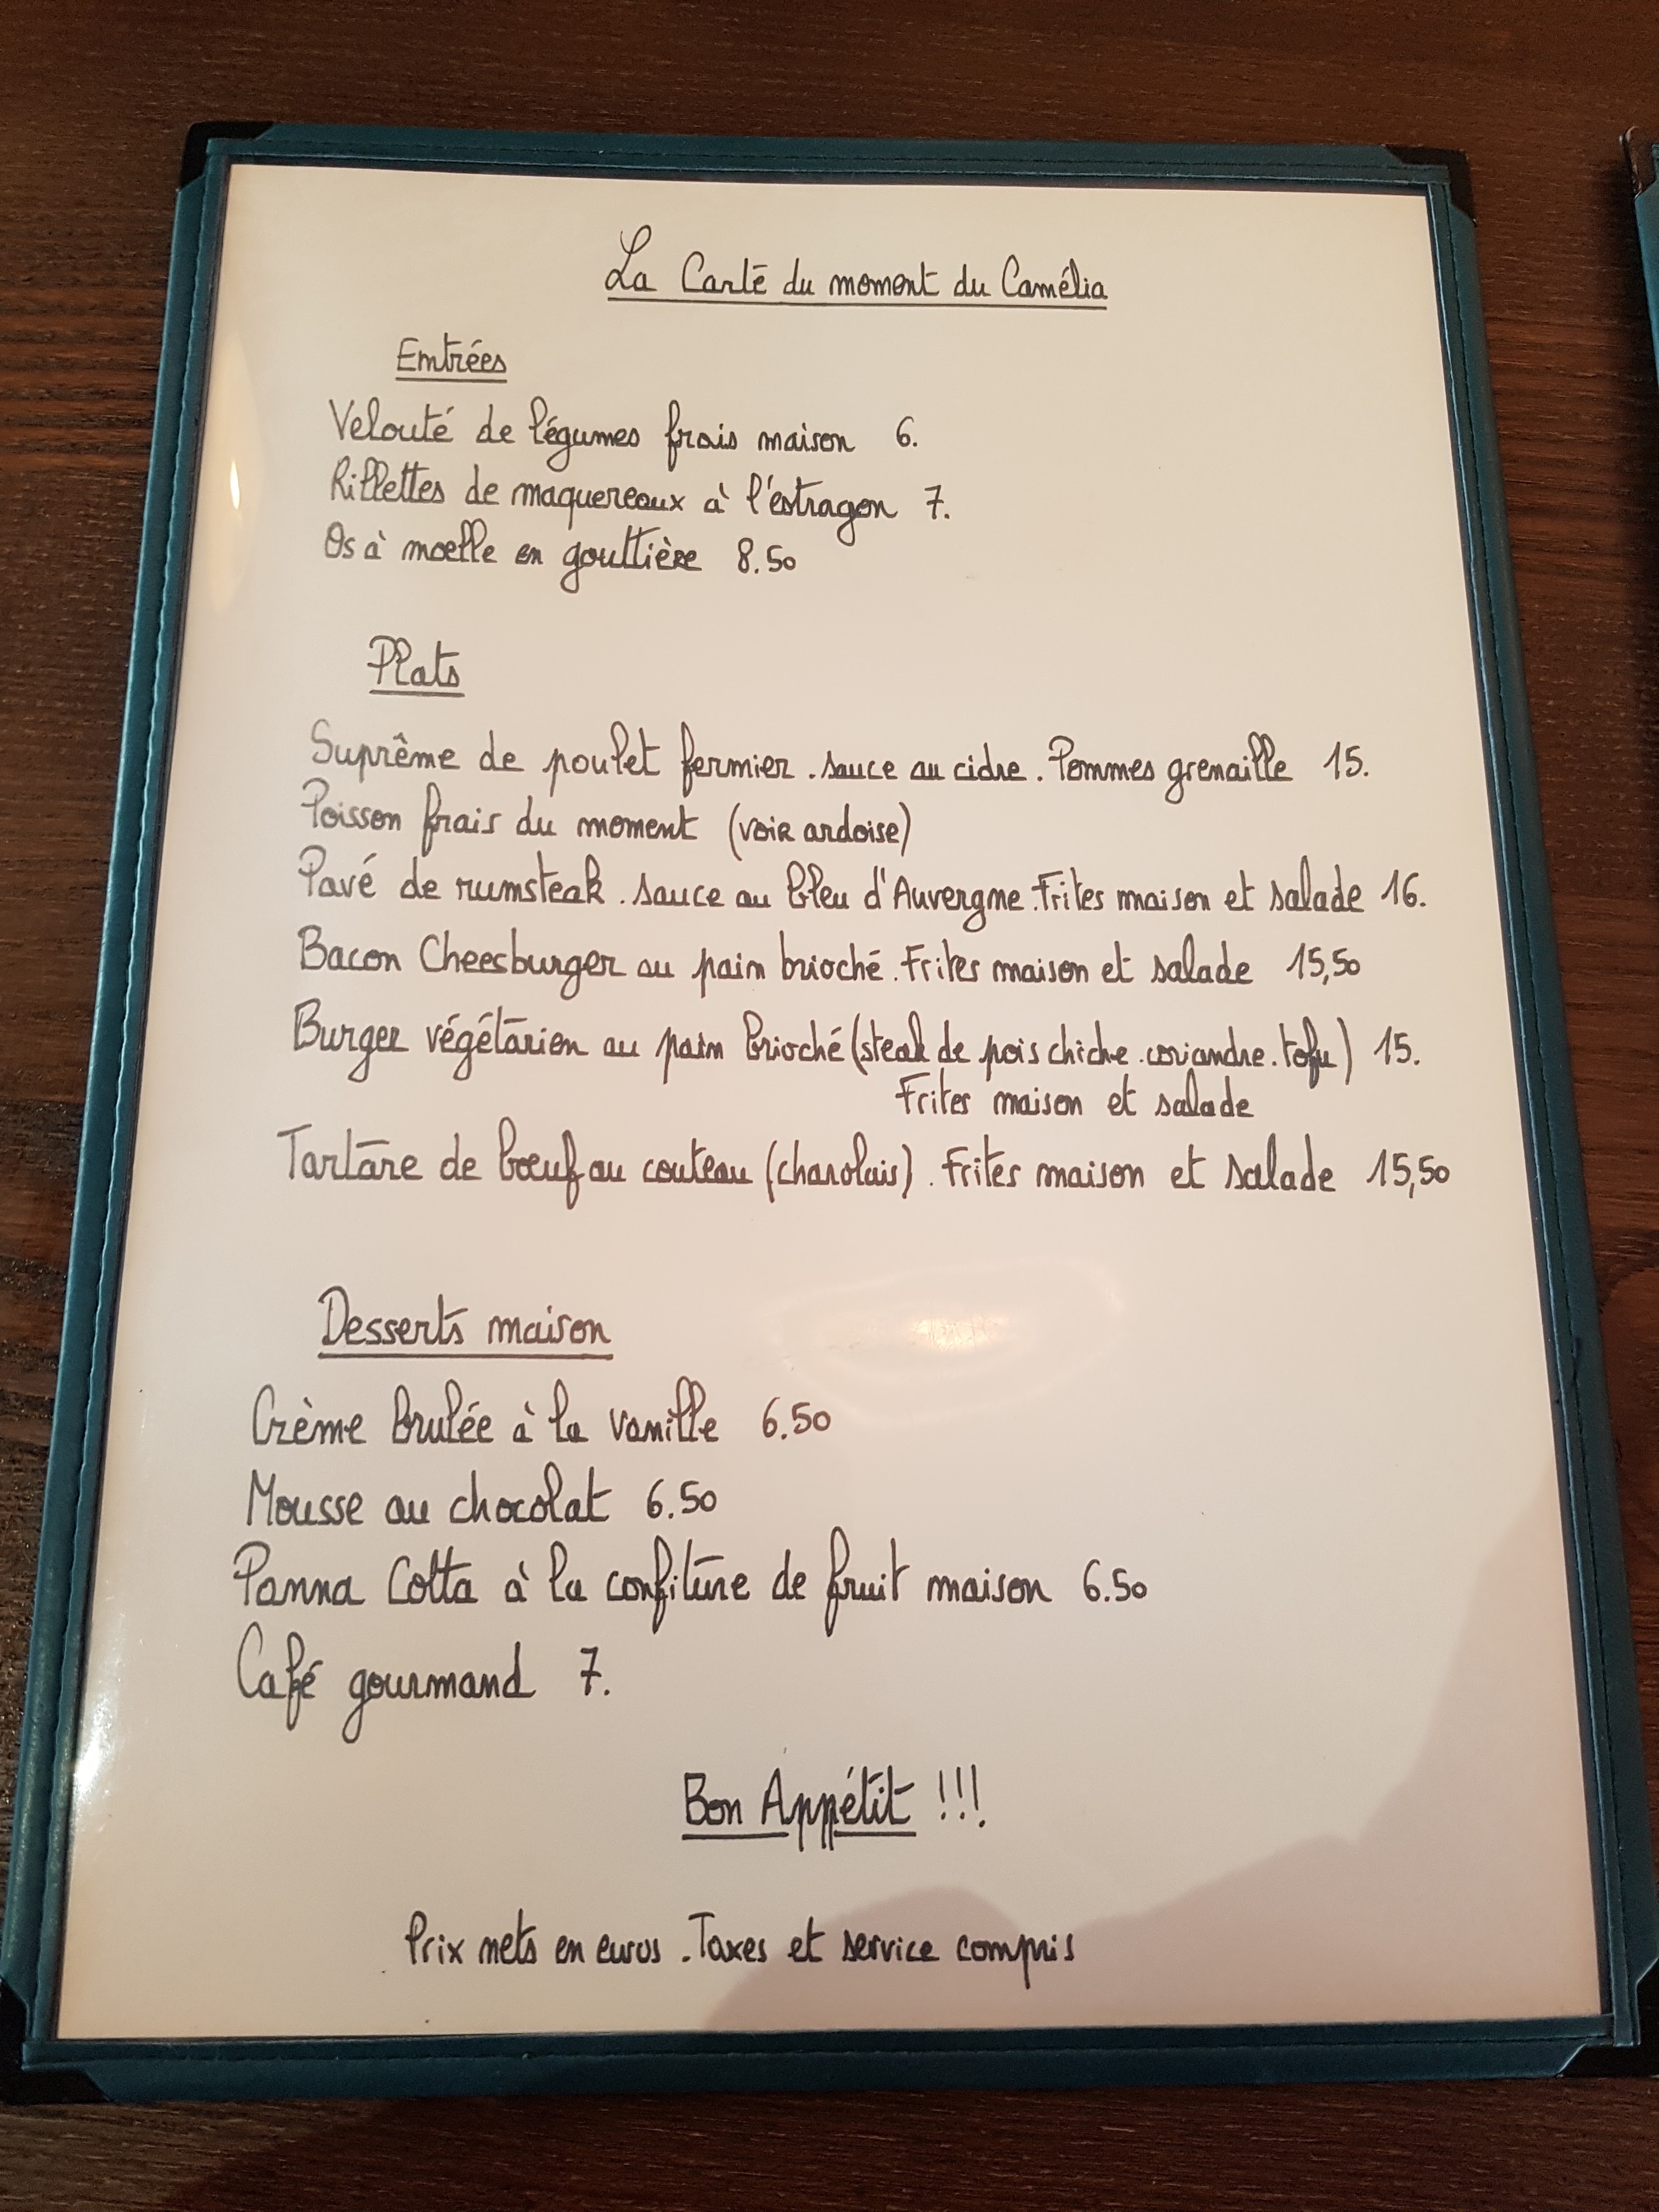 La Carte du moment du Camélia
Entrées
Velouté de légumes frais maison 6.
Rillettes de maquereaux à l'estragon 7.
Os à moelle en gouttière 8.50
Plats
Suprême de poulet fermier . sauce au cidre . Pommes grenaille 15.
Poisson frais du moment (voir ardoise)
Pavé de rumsteak . sauce au bleu d'Auvergne . Frites maison et salade 16.
Bacon Cheesburger au pain brioché . Frites maison et salade 15,50
Burger végétarien au pain brioché (steak de pois chiche . coriandre . tofu) 15.
Frites maison et salade
Tartare de bœuf au couteau (charolais) . Frites maison et salade 15,50
Desserts maison
Crème Brulée à la vanille 6.50
Mousse au chocolat 6.50
Panna Cotta à la confiture de fruit maison 6.50
Café gourmand 7.
Bon Appétit !!!
Prix nets en euros . Taxes et service compris